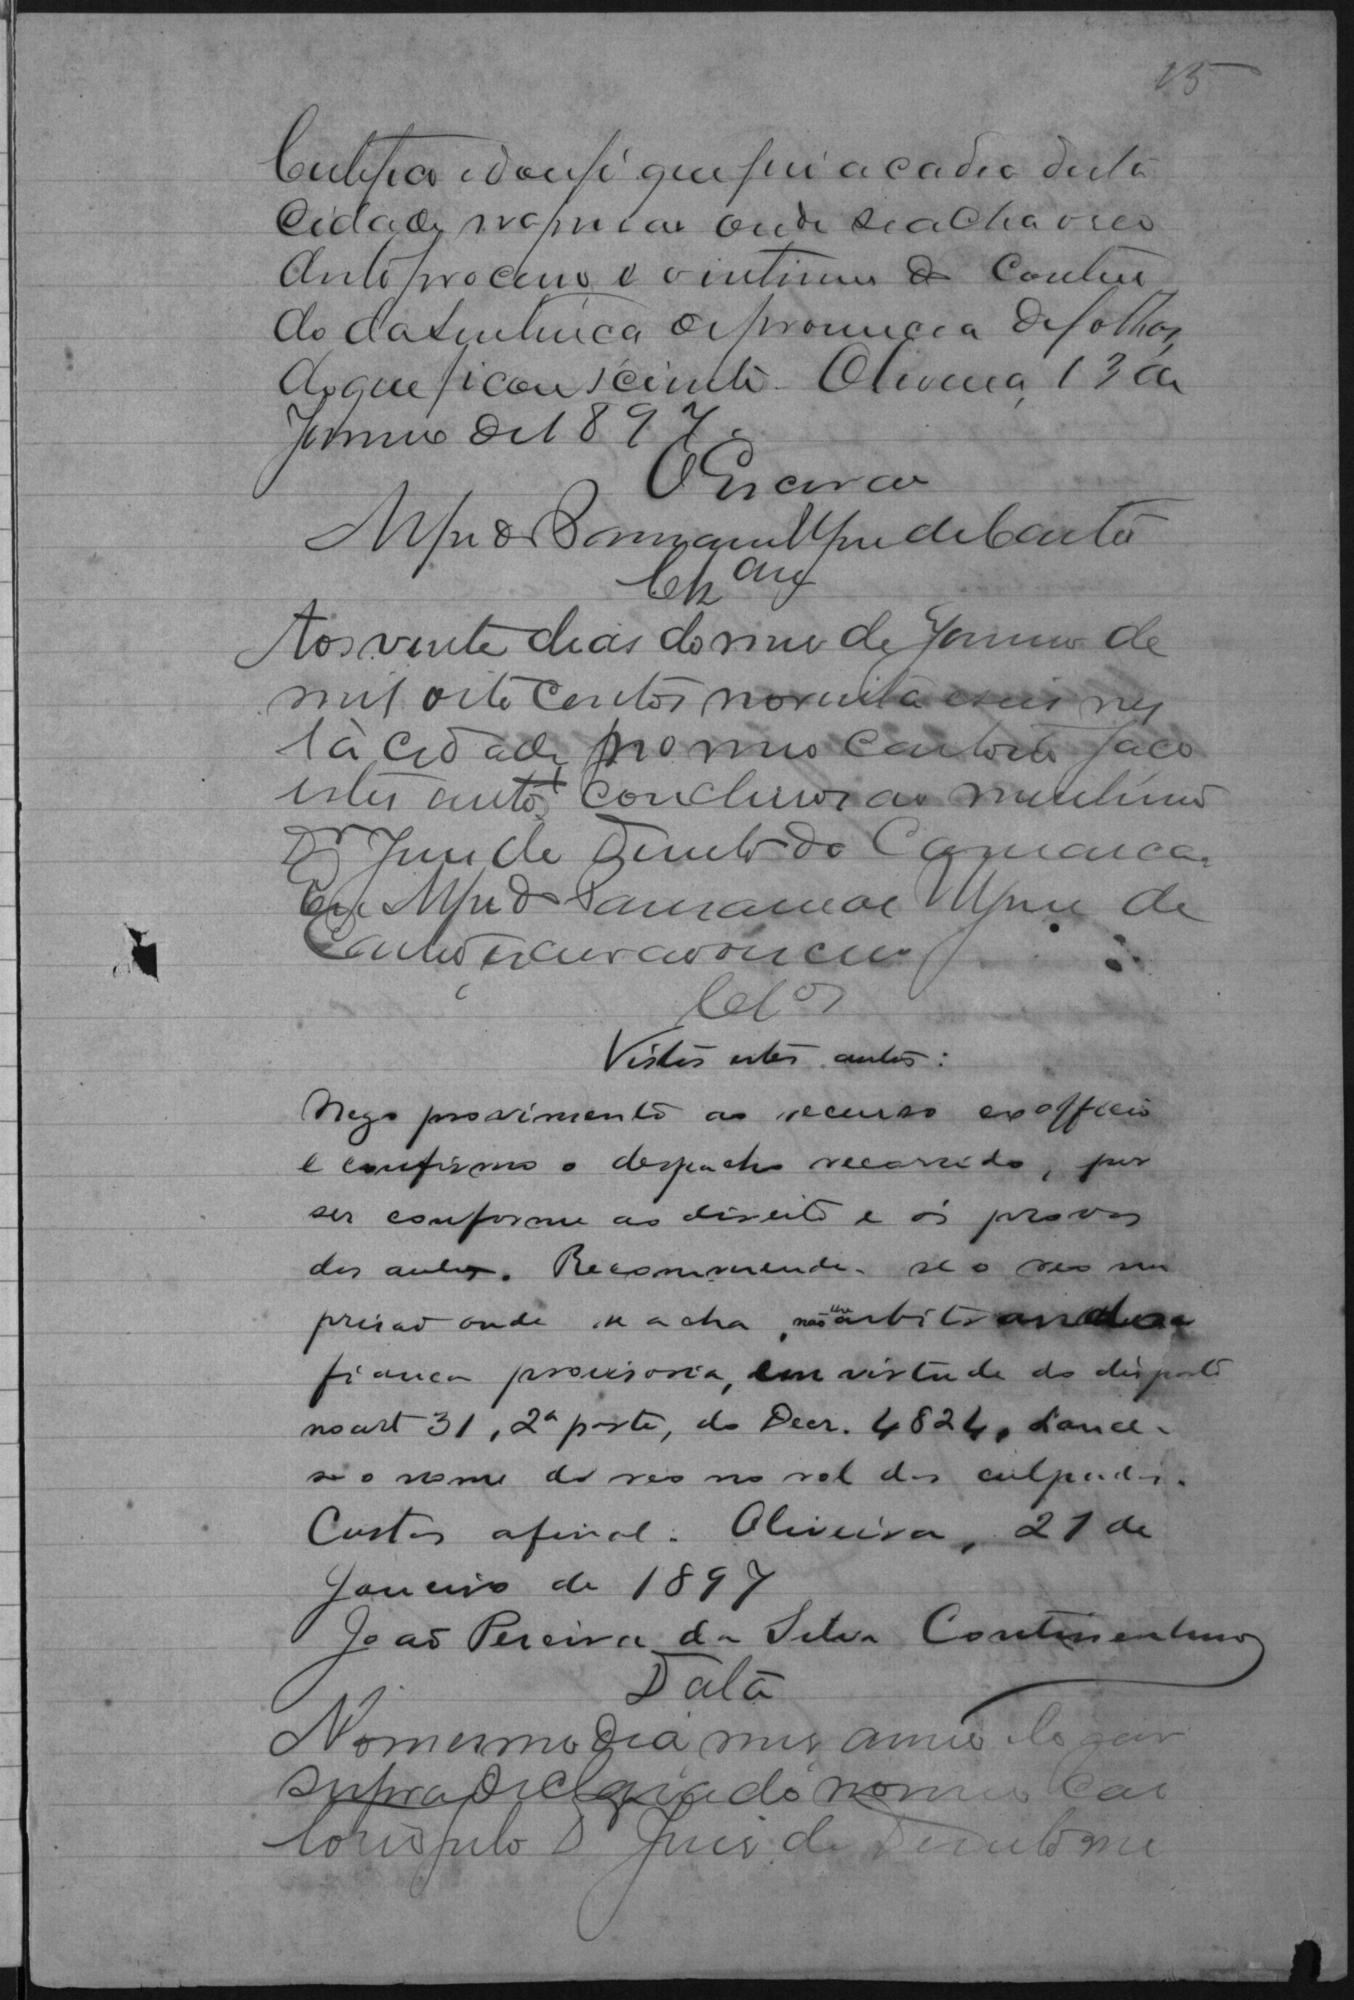 15
Certifico e dou fé que fui a cadea desta
Cidade na prisão onde se acha o reo
deste processo e o intimei do conteú
do da sentença de pronuncia de folhas,
do que ficou sciente. Oliveira, 13 de
Janeiro de 1897.
O Escrivão
Alfredo de Castro
Clzão
Aos vinte dias do mes de Janeiro de
mil oito centos noventa e seis nes
ta cidade, no meu cartorio faço
estes autos conclusos ao meritissimo
Dr Juis de Direito da Comarca.
Eu Alfredo de
Castro escrivão o escrevi
Clos
Vistos estes autos:
Nego provimento ao recurso ex officio
e confirmo o despacho recorrido, por
ser conforme ao direito e ás provas
dos autos. Recommende-se o reo na
prisão onde se acha, não lhe arbitrando a
fiança provisoria, em virtude do disposto
no art 31, 2ª parte, do Decr. 4824. Lance-
se o nome do reo no rol dos culpados.
Custas afinal. Oliveira, 21 de
Janeiro de 1897
João Pereira da Silva Continentino
Data
No mesmo dia mes anno e logar
supra declarado no meu car
torio pelo Dr Juis de Direito me